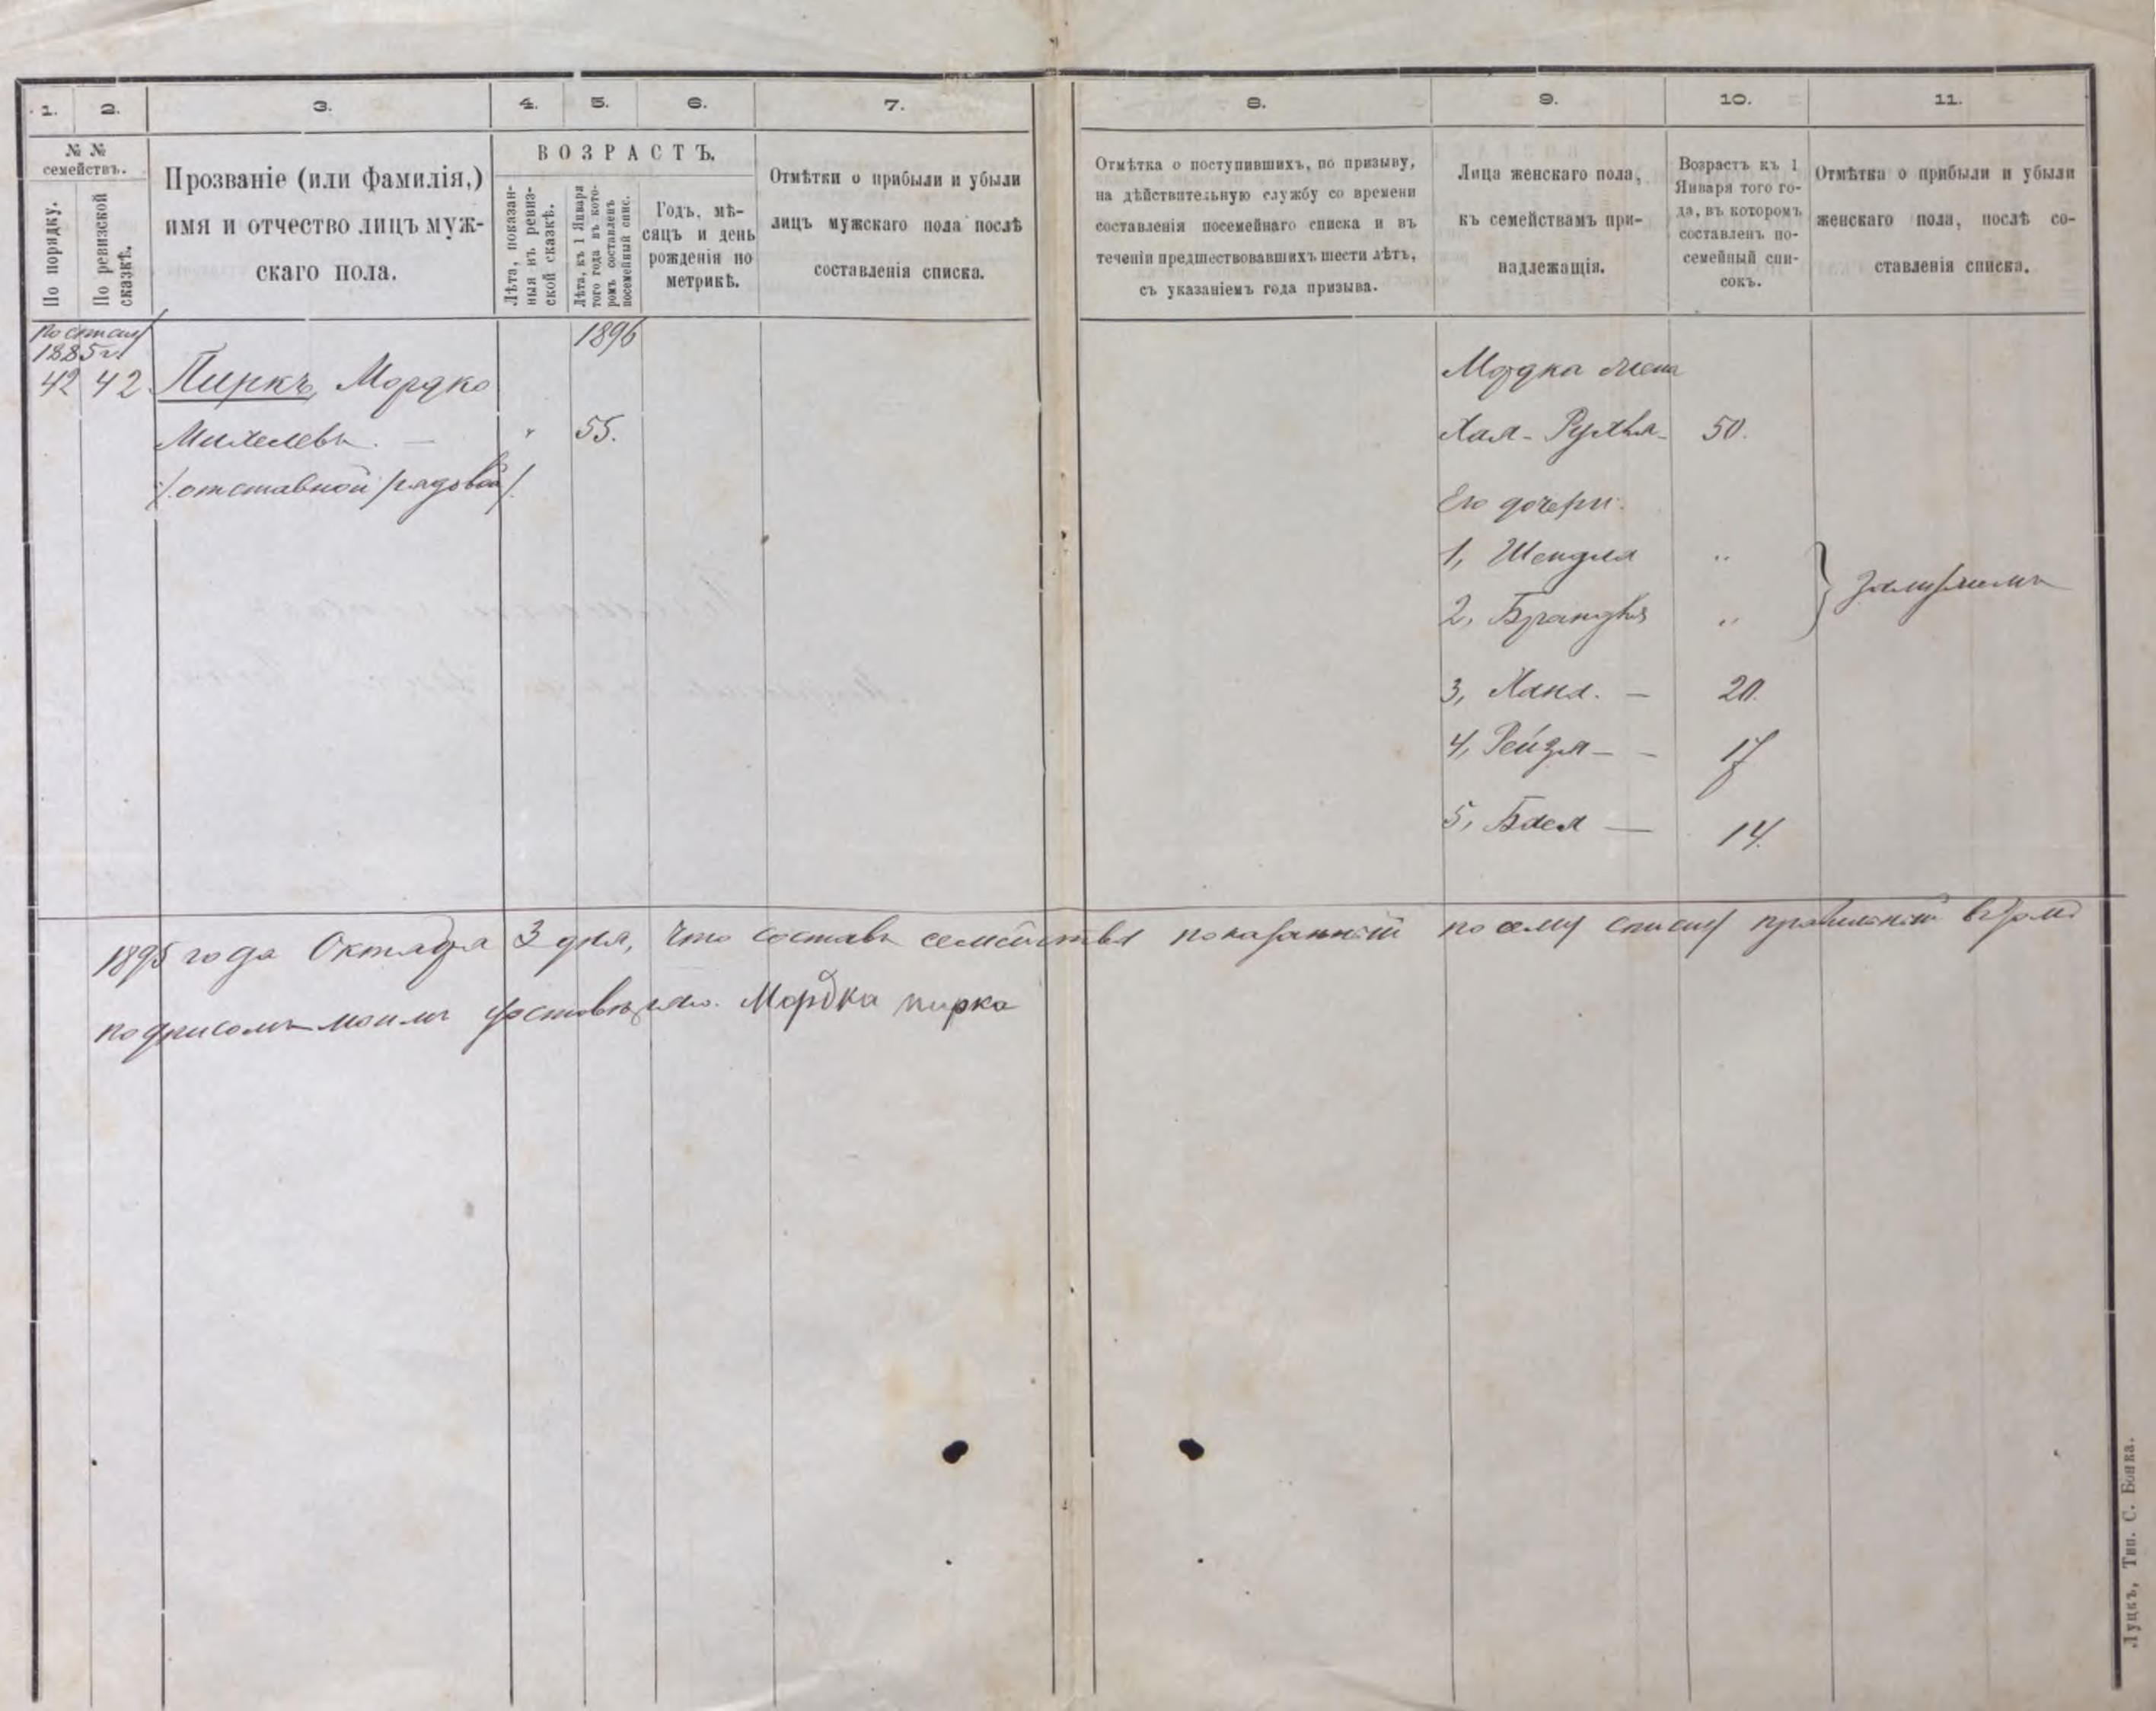 1. 2. 3. 4. 5. 6. 7. 8. 9. 10. 11.
№ №
семействъ.
По порядку.
По ревизской
сказкѣ.
Прозваніе (или фамилія,)
имя и отчество лицъ муж-
скаго пола.
ВОЗРАСТЪ.
Лѣта, показан-
ныя въ ревиз-
ской сказкѣ.
Лѣта, къ 1 Января
того года въ кото-
ромъ составленъ
посемейный спис.
Годъ, мѣ-
сяцъ и день
рожденія по
метрикѣ.
Отмѣтки о прибыли и убыли
лицъ мужскаго пола послѣ
составленія списка.
Отмѣтка о поступившихъ, по призыву,
на дѣйствительную службу со времени
составленія посемейнаго списка и въ
теченіи предшествовавшихъ шести лѣтъ,
съ указаніемъ года призыва.
Лица женскаго пола,
къ семействамъ при-
надлежащія.
Возрастъ къ 1
Января того го-
да, въ которомъ
составленъ по-
семейный спи-
сокъ.
Отмѣтка о прибыли и убыли
женскаго пола, послѣ со-
ставленія списка.
По списку
1885 г.
1896
42 42 Пиркъ, Мордко
Михелевъ. — " 55.
/отставной рядовой/.
Мордка жена
Хая-Рухля 50.
Его дочери:
1, Шендля "
2, Брандля "
замужемъ
3, Хана. — 20.
4, Рейзя — — 17
5, Бася — 14.
1895 года Октября 3 дня, что составъ семейства показанный по сему списку правильный вѣрно
подписомъ моимъ удостовѣряю. Мордка пирка
Луцкъ, Тип. С. Бонка.